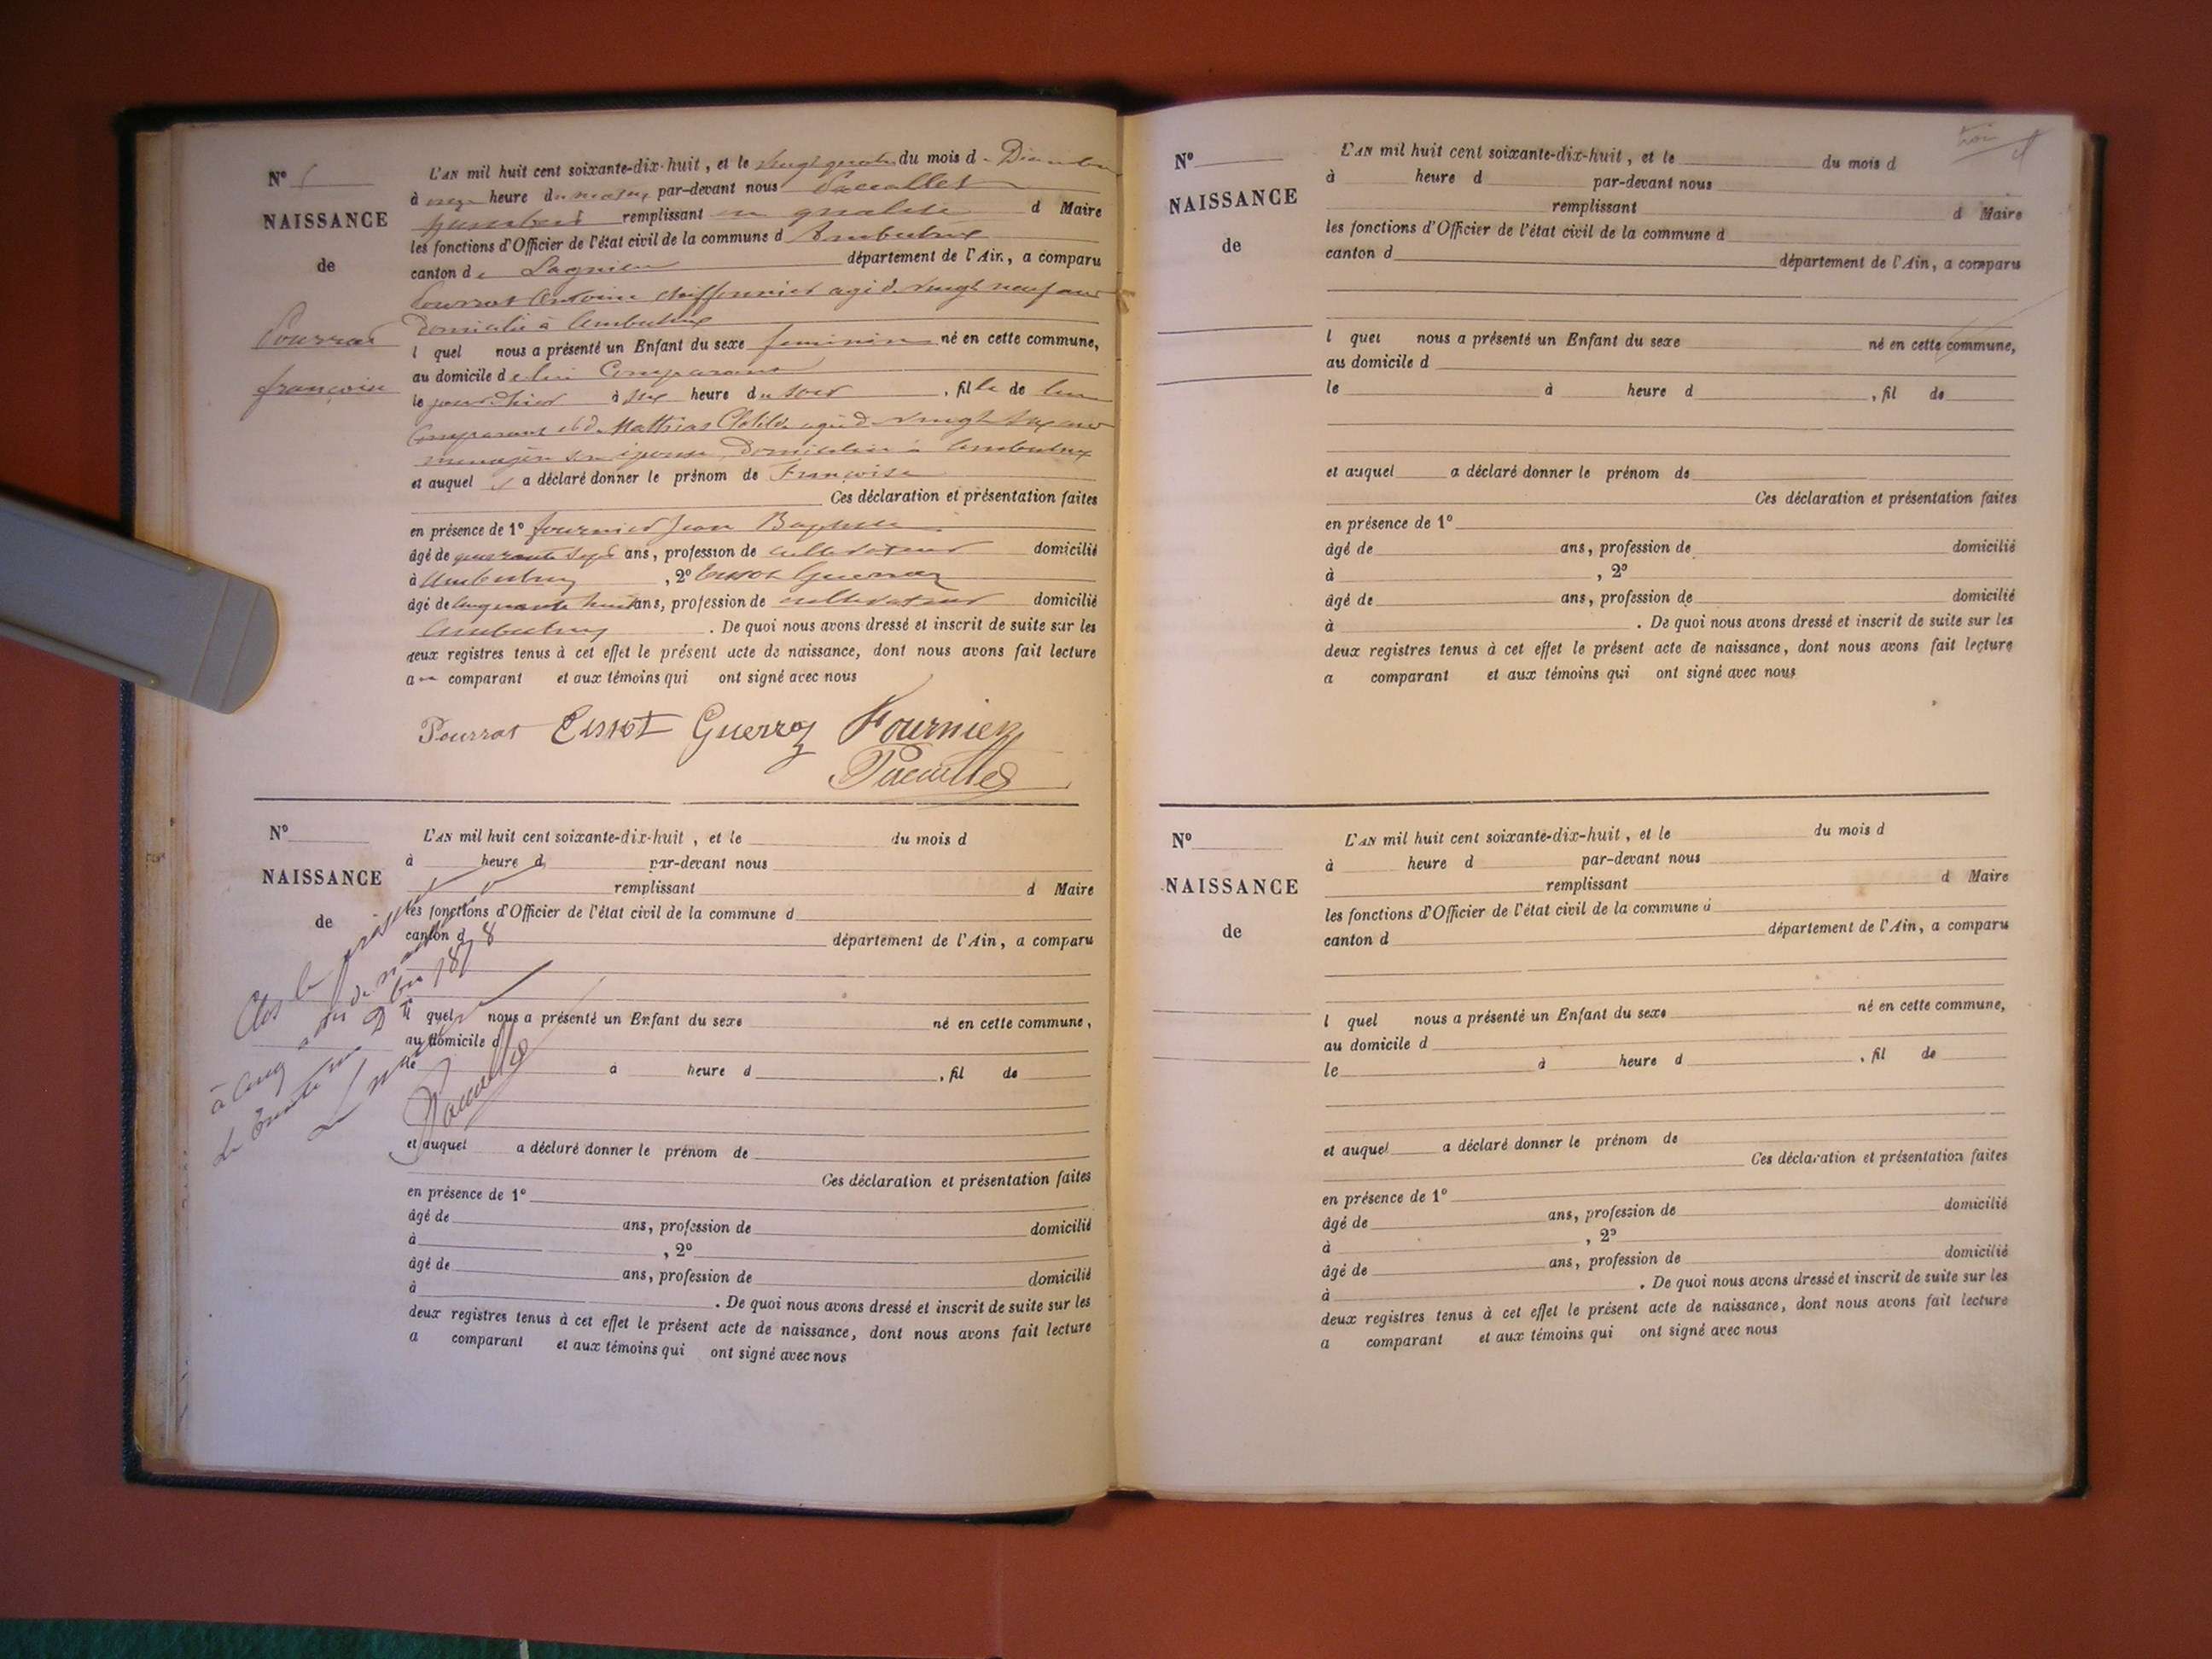 N° 5
NAISSANCE
de
Pourrat
françoise
L'AN mil huit cent soixante-dix-huit, et le vingt quatre du mois d. Décembre
à onze heure du matin par-devant nous Paccallet
remplissant en qualité d Maire
les fonctions d'Officier de l'état civil de la commune d Ambutrix
canton de Lagnieu département de l'Ain, a comparu
Pourrat Antoine chiffonnier agé de vingt neuf ans
Domicilié à Ambutrix
l quel nous a présenté un Enfant du sexe feminin né en cette commune,
au domicile de lui Comparant
le jour d'hier à six heure du soir, fille de lui
Comparant et de Mathias Clotilde agée d vingt six ans
menagère son épouse Domiciliée à Ambutrix
et auquel il a déclaré donner le prénom de Françoise
Ces déclaration et présentation faites
en présence de 1° fournier Jean Baptiste
âgé de quarante sept ans, profession de cultivateur domicilié
à Ambutrix, 2° Guerraz
âgé de cinquante huit ans, profession de cultivateur domicilié
Ambutrix. De quoi nous avons dressé et inscrit de suite sur les
deux registres tenus à cet effet le présent acte de naissance, dont nous avons fait lecture
au comparant et aux témoins qui ont signé avec nous
Pourrat Guerraz Fournier
Paccallet
N°
NAISSANCE
de
L'AN mil huit cent soixante-dix-huit, et le du mois d
à heure d par-devant nous
remplissant d Maire
les fonctions d'Officier de l'état civil de la commune d
canton d département de l'Ain, a comparu
l quel nous a présenté un Enfant du sexe né en cette commune,
au domicile d
le à heure d, fil de
et auquel a déclaré donner le prénom de
Ces déclaration et présentation faites
en présence de 1°
âgé de ans, profession de domicilié
à, 2°
âgé de ans, profession de domicilié
à. De quoi nous avons dressé et inscrit de suite sur les
deux registres tenus à cet effet le présent acte de naissance, dont nous avons fait lecture
a comparant et aux témoins qui ont signé avec nous
Clos le présent
à cinq actes de naissance
le trente un Dbre 1878
Le maire
Paccallet
N°
NAISSANCE
de
L'AN mil huit cent soixante-dix-huit, et le du mois d
à heure d par-devant nous
remplissant d Maire
les fonctions d'Officier de l'état civil de la commune d
canton d département de l'Ain, a comparu
l quel nous a présenté un Enfant du sexe né en cette commune,
au domicile d
le à heure d, fil de
et auquel a déclaré donner le prénom de
Ces déclaration et présentation faites
en présence de 1°
âgé de ans, profession de domicilié
à, 2°
âgé de ans, profession de domicilié
à. De quoi nous avons dressé et inscrit de suite sur les
deux registres tenus à cet effet le présent acte de naissance, dont nous avons fait lecture
a comparant et aux témoins qui ont signé avec nous
N°
NAISSANCE
de
L'AN mil huit cent soixante-dix-huit, et le du mois d
à heure d par-devant nous
remplissant d Maire
les fonctions d'Officier de l'état civil de la commune d
canton d département de l'Ain, a comparu
l quel nous a présenté un Enfant du sexe né en cette commune,
au domicile d
le à heure d, fil de
et auquel a déclaré donner le prénom de
Ces déclaration et présentation faites
en présence de 1°
âgé de ans, profession de domicilié
à, 2°
âgé de ans, profession de domicilié
à. De quoi nous avons dressé et inscrit de suite sur les
deux registres tenus à cet effet le présent acte de naissance, dont nous avons fait lecture
a comparant et aux témoins qui ont signé avec nous